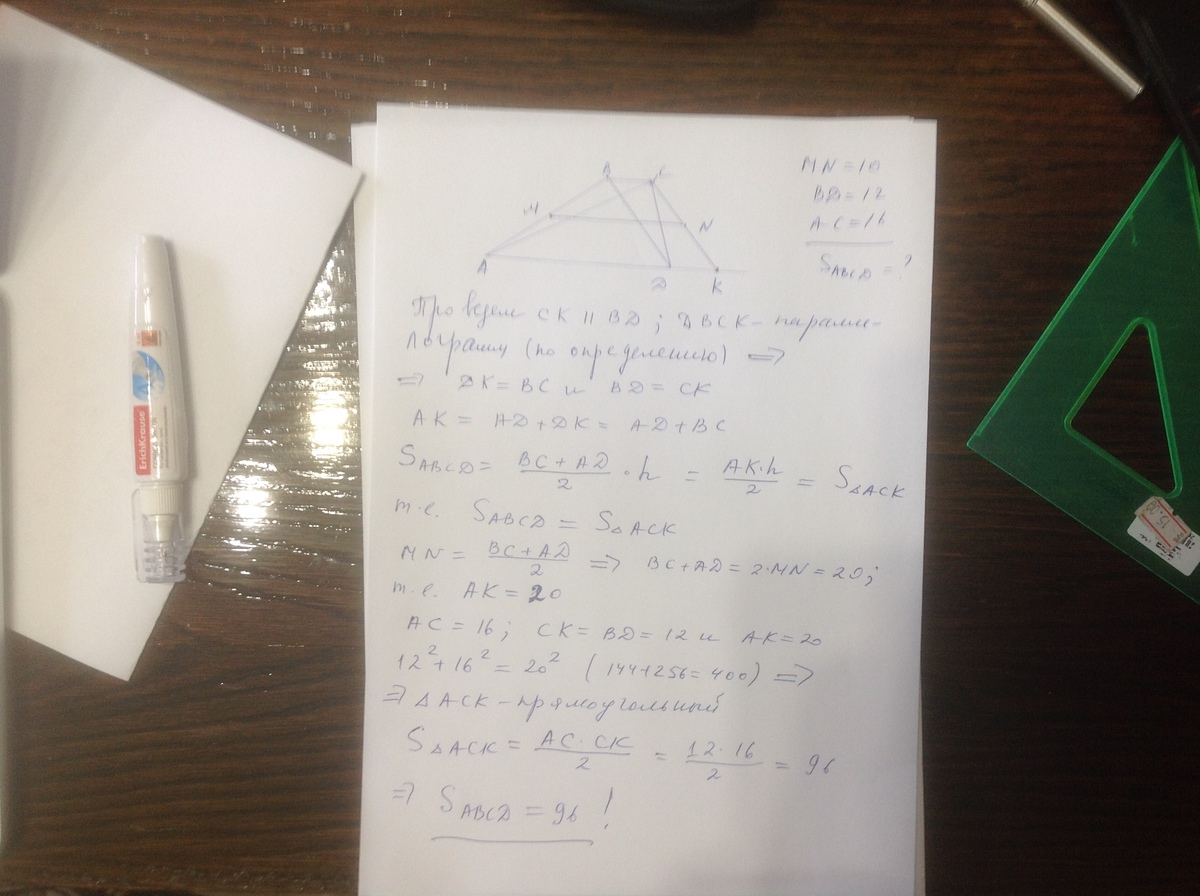 B C
M N
A D K
MN = 10
BD = 12
AC = 16
S ABCD = ?
Проведем CK || BD ; DBCK - паралле-
лограмм (по определению) =>
=> DK = BC и BD = CK
AK = AD + DK = AD + BC
S ABCD = (BC + AD)/2 · h = (AK · h)/2 = S △ACK
т.е. S ABCD = S △ACK
MN = (BC + AD)/2 => BC + AD = 2·MN = 20;
т.е. AK = 20
AC = 16; CK = BD = 12 и AK = 20
12² + 16² = 20² (144+256=400) =>
=> △ACK - прямоугольный
S △ACK = (AC · CK)/2 = (12 · 16)/2 = 96
=> S ABCD = 96 !
ErichKrause
15.00